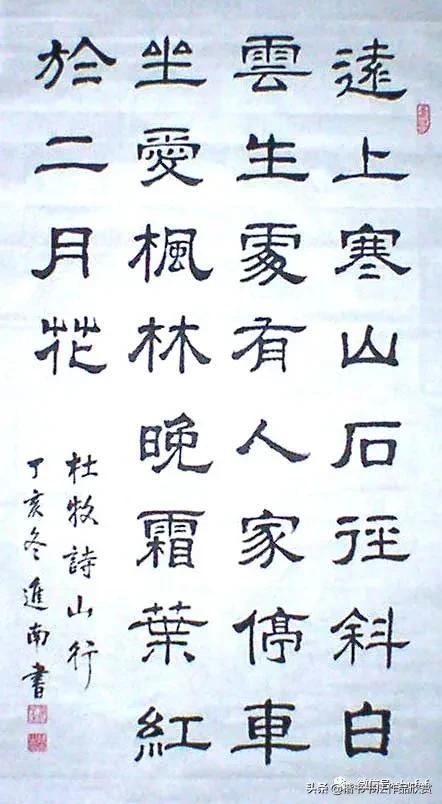 遠上寒山石径斜白
雲生處有人家停車
坐愛楓林晚霜葉紅
於二月花
杜牧詩山行
丁亥冬進南書
头条 @楷书书法作品欣赏